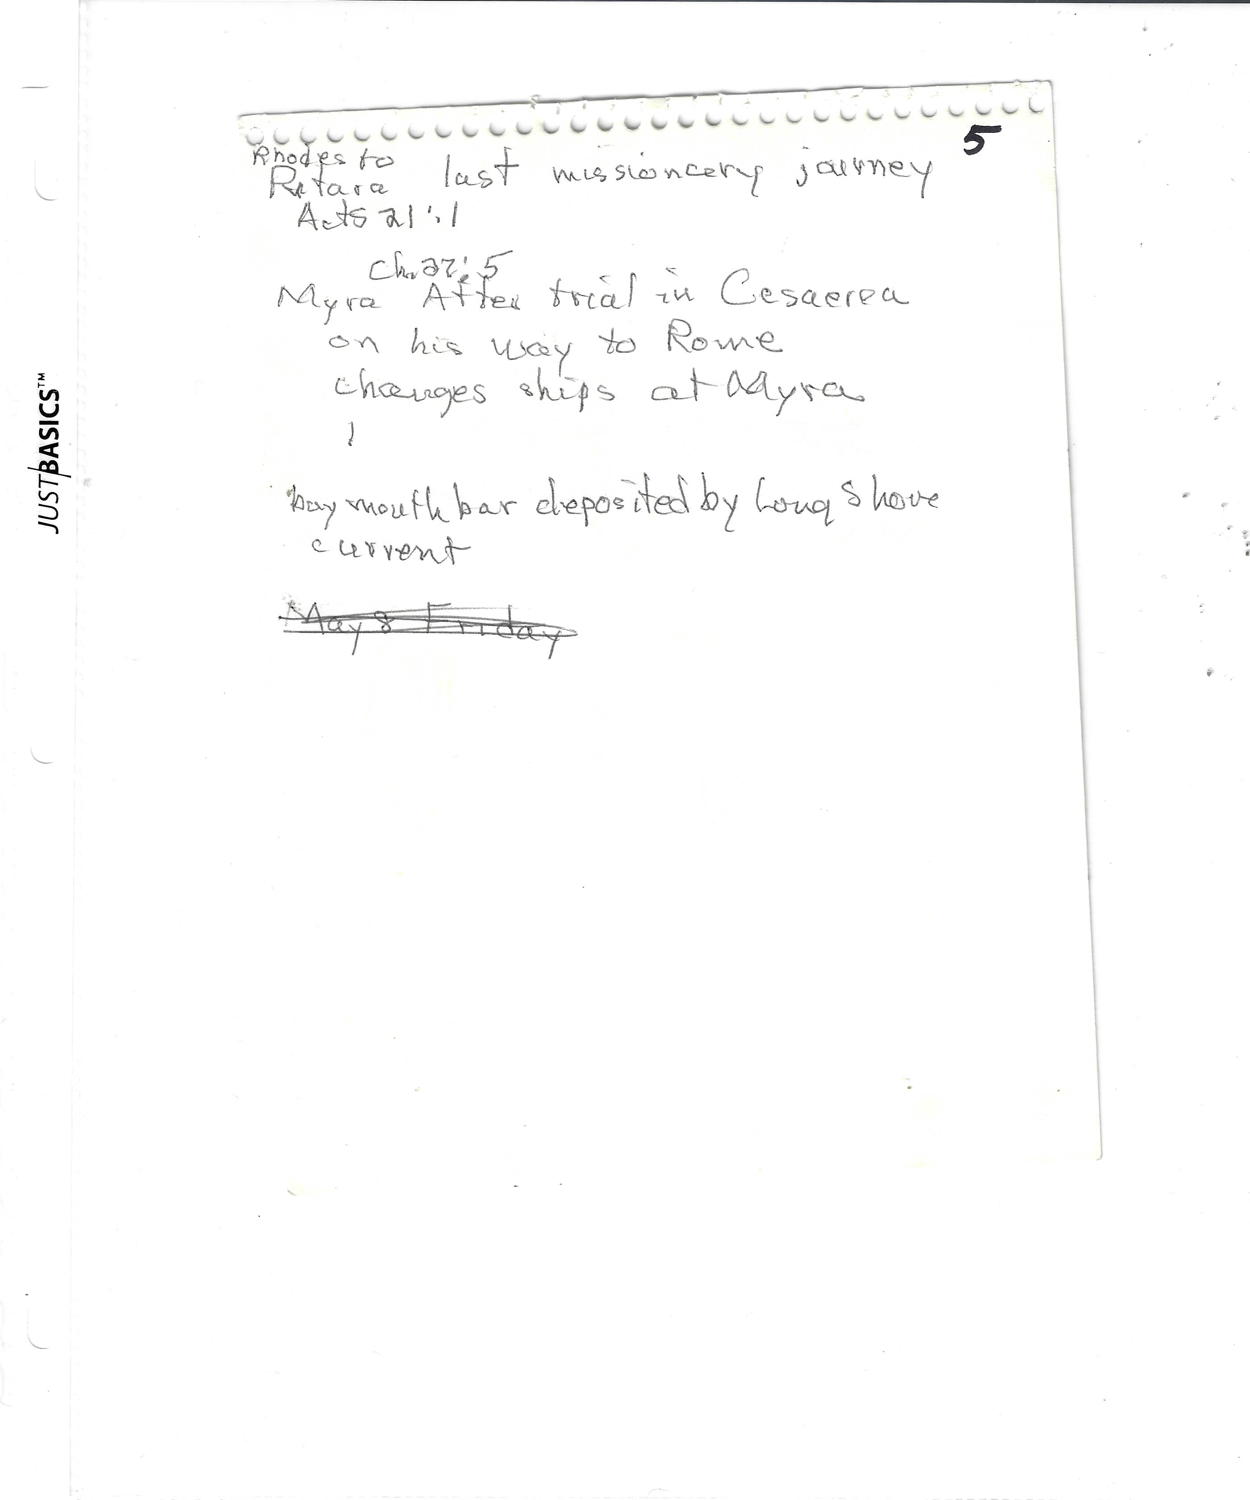 5
Rhodes to
Patara last missionary journey
Acts 21:1
Ch. 27:5
Myra After trial in Cesaerea
on his way to Rome
changes ships at Myra
bay mouth bar deposited by Long Shore
current
May 8 Friday
JUST BASICS™